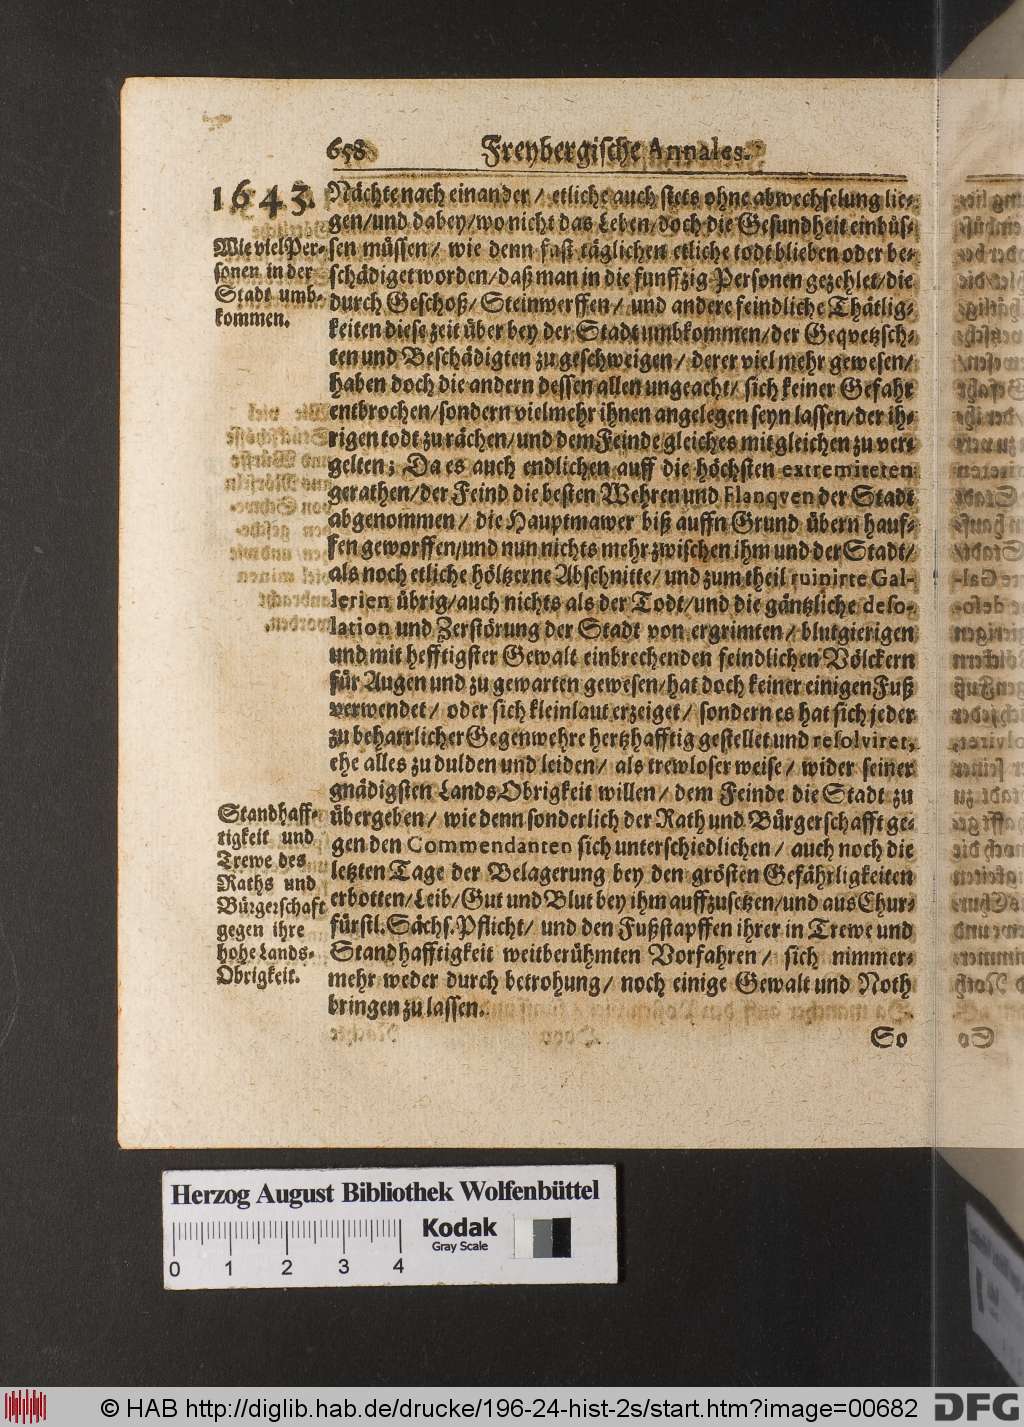 658 Freybergische Annales.
1643.
Wie viel Per-
sonen in der
Stadt umb-
kommen.
Nächte nach einander / etliche auch stets ohne abwechselung lie-
gen/und dabey/wo nicht das Leben/doch die Gesundheit einbüs-
sen müssen/ wie denn fast täglichen etliche todt blieben oder be-
schädiget worden/daß man in die funffzig Personen gezehlet/die
durch Geschoß/ Steinwerffen/ und andere feindliche Thätlig-
keiten diese zeit über bey der Stadt umbkommen/der Geqvetzsch-
ten und Beschädigten zu geschweigen/ derer viel mehr gewesen/
haben doch die andern dessen allen ungeacht/ sich keiner Gefahr
entbrochen/sondern vielmehr ihnen angelegen seyn lassen/der ih-
rigen todt zu rächen/und dem Feinde gleiches mit gleichen zu ver-
gelten; Da es auch endlichen auff die höchsten extremiteten
gerathen/der Feind die besten Wehren und Flanqven der Stadt
abgenommen/ die Hauptmawer biß auffn Grund übern hauf-
fen geworffen/und nun nichts mehr zwischen ihm und der Stadt/
als noch etliche höltzerne Abschnitte/ und zum theil ruinirte Gal-
lerien übrig/auch nichts als der Todt/und die gäntzliche deso-
lation und Zerstörung der Stadt von ergrimten/ blutgierigen
und mit hefftigster Gewalt einbrechenden feindlichen Völckern
für Augen und zu gewarten gewesen/hat doch keiner einigen Fuß
verwendet/ oder sich kleinlaut erzeiget/ sondern es hat sich jeder
zu beharrlicher Gegenwehre hertzhafftig gestellet und resolviret,
ehe alles zu dulden und leiden/ als trewloser weise/ wider seiner
gnädigsten Lands Obrigkeit willen/ dem Feinde die Stadt zu
übergeben/ wie denn sonderlich der Rath und Bürgerschafft ge-
gen den Commendanten sich unterschiedlichen/ auch noch die
letzten Tage der Belagerung bey den grösten Gefährligkeiten
erbotten/Leib/Gut und Blut bey ihm auffzusetzen/und aus Chur-
fürstl. Sächs. Pflicht/ und den Fußstapffen ihrer in Trewe und
Standhafftigkeit weitberühmten Vorfahren/ sich nimmer-
mehr weder durch betrohung/ noch einige Gewalt und Noth
bringen zu lassen.
Standhaff-
tigkeit und
Trewe des
Raths und
Bürgerschaft
gegen ihre
hohe Lands-
Obrigkeit.
So
Herzog August Bibliothek Wolfenbüttel
Kodak
Gray Scale
0 1 2 3 4
© HAB http://diglib.hab.de/drucke/196-24-hist-2s/start.htm?image=00682
DFG